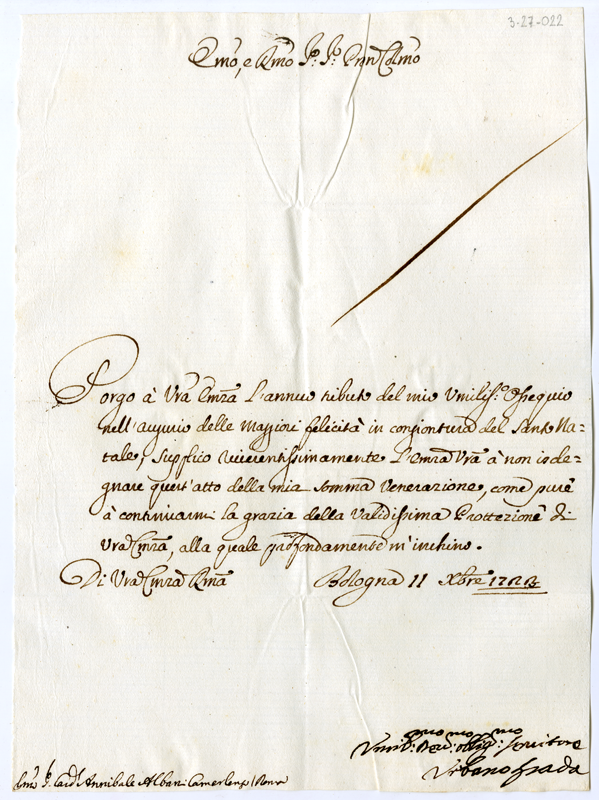 3-27-022
Emō, e Rmō Sr. Sr. Prōn Colmō
Porgo à Vrā Emzā l'annuo tributo del mio Vmiliss.º Ossequio
nell'augurio delle Maggiori felicità in congiontura del Santo Na=
tale, Supplico reverentissimamente l'Emzā Vrā à non isde=
gnare quest'atto della mia somma Venerazione, come pure
à continuarmi la grazia della Validissima Prottezione di
Vrā Emzā, alla quale profondamente m'inchino.
Di Vrā Emzā Rmā Bologna 11 Xbre
Vmil.mo Dev.mo Obblig.mo Servitore
Urbano
Emō Sr. Card. Annibale Albani Camerlengo / Roma